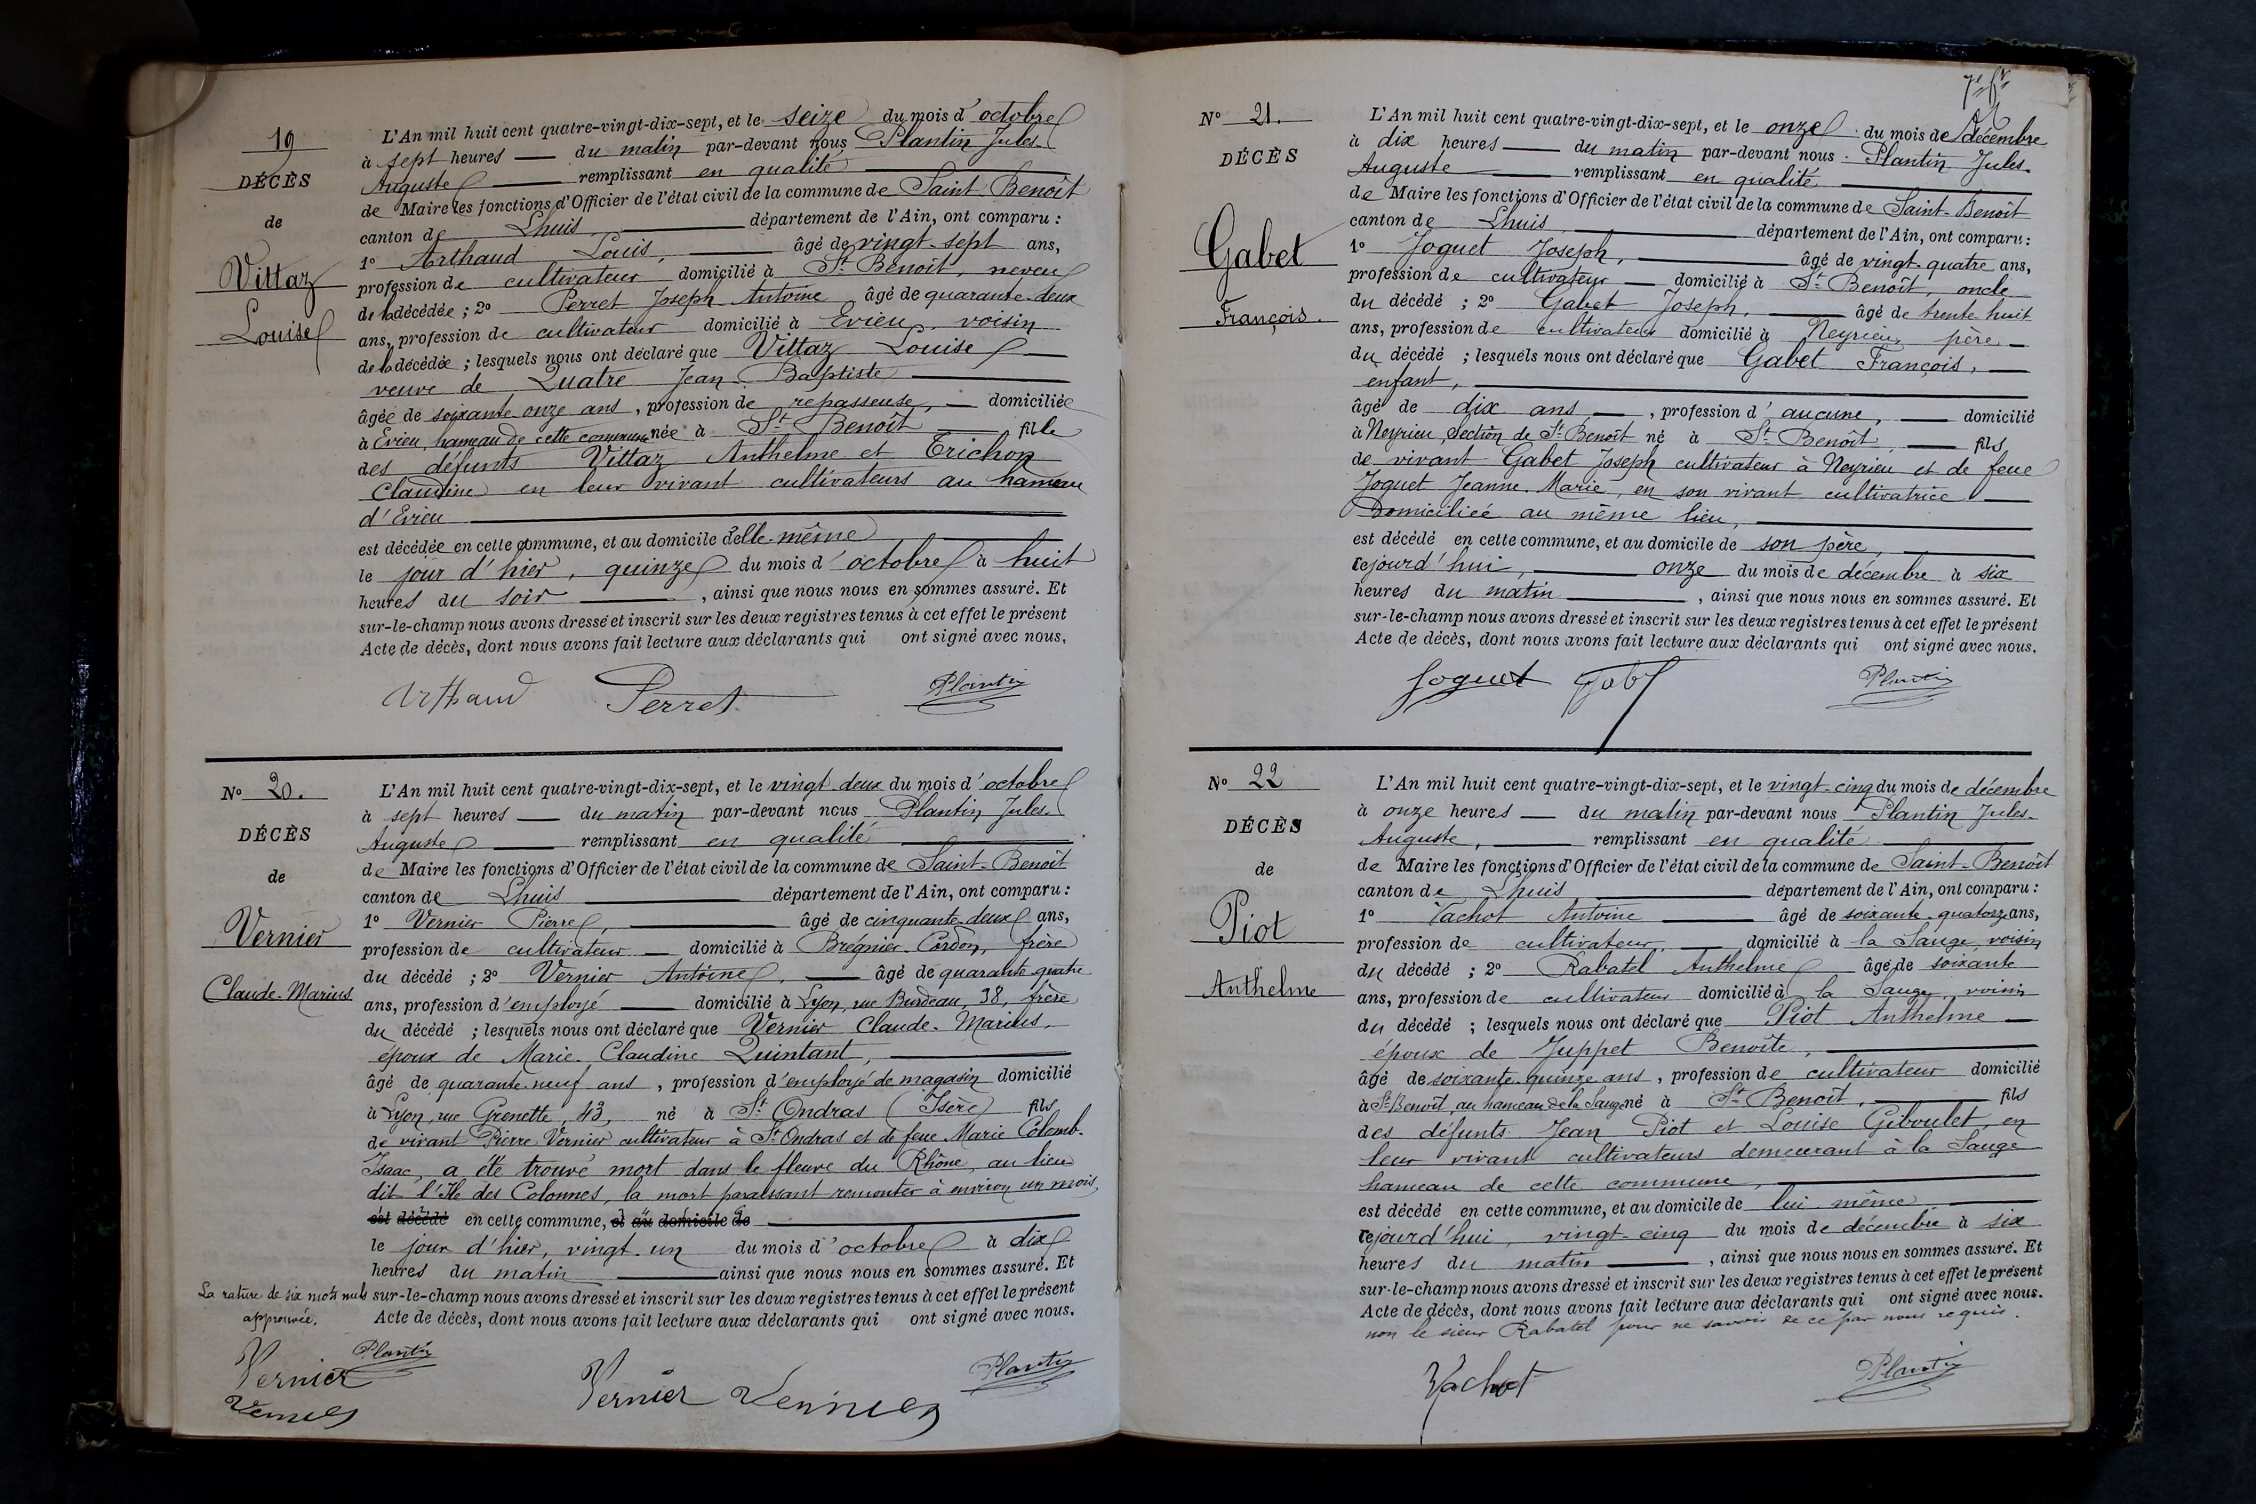 19
DÉCÈS
de
Vittaz
Louise
L'An mil huit cent quatre-vingt-dix-sept, et le seize du mois d'octobre
à sept heures du matin par-devant nous Plantin Jules-
Auguste remplissant en qualité
de Maire les fonctions d'Officier de l'état civil de la commune de Saint-Benoît
canton de Lhuis département de l'Ain, ont comparu :
1° Arthaud Louis, âgé de vingt-sept ans,
profession de cultivateur domicilié à St Benoît, neveu
de la décédée ; 2° Perret Joseph Antoine âgé de quarante-deux
ans, profession de cultivateur domicilié à Evieu, voisin
de la décédée ; lesquels nous ont déclaré que Vittaz Louise
veuve de Quatre Jean-Baptiste
âgée de soixante onze ans, profession de repasseuse, domiciliée
à Evieu, hameau de cette commune née à St Benoît fille
des défunts Vittaz Anthelme et Trichon
Claudine en leur vivant cultivateurs au hameau
d'Evieu
est décédée en cette commune, et au domicile d'elle-même
le jour d'hier, quinze du mois d'octobre à huit
heures du soir, ainsi que nous nous en sommes assuré. Et
sur-le-champ nous avons dressé et inscrit sur les deux registres tenus à cet effet le présent
Acte de décès, dont nous avons fait lecture aux déclarants qui ont signé avec nous.
Arthaud Perret Plantin
N° 20.
DÉCÈS
de
Vernier
Claude-Marius
L'An mil huit cent quatre-vingt-dix-sept, et le vingt-deux du mois d'octobre
à sept heures du matin par-devant nous Plantin Jules-
Auguste remplissant en qualité
de Maire les fonctions d'Officier de l'état civil de la commune de Saint-Benoît
canton de Lhuis département de l'Ain, ont comparu :
1° Vernier Pierre, âgé de cinquante-deux ans,
profession de cultivateur domicilié à Bregnier-Cordon, frère
du décédé ; 2° Vernier Antoine, âgé de quarante quatre
ans, profession d'employé domicilié à Lyon, rue Burdeau, 38, frère
du décédé ; lesquels nous ont déclaré que Vernier Claude-Marius,
époux de Marie-Claudine Quintant,
âgé de quarante-neuf ans, profession d'employé de magasin domicilié
à Lyon, rue Grenette, 43, né à St Ondras (Isère) fils
de vivant Pierre Vernier cultivateur à St Ondras et de feue Marie Colomb-
Isaac, a été trouvé mort dans le fleuve du Rhône, au lieu
dit l'Ile des Colonnes, la mort paraissant remonter à environ un mois,
est décédé en cette commune, et au domicile de
le jour d'hier, vingt-un du mois d'octobre à dix
heures du matin ainsi que nous nous en sommes assuré. Et
La rature de six mots nuls
approuvée.
sur-le-champ nous avons dressé et inscrit sur les deux registres tenus à cet effet le présent
Acte de décès, dont nous avons fait lecture aux déclarants qui ont signé avec nous.
Plantin
Vernier
Vernier
Vernier Vernier Plantin
7e ft
N° 21.
DÉCÈS
Gabet
François.
L'An mil huit cent quatre-vingt-dix-sept, et le onze du mois de décembre
à dix heures du matin par-devant nous Plantin Jules-
Auguste remplissant en qualité
de Maire les fonctions d'Officier de l'état civil de la commune de Saint-Benoît
canton de Lhuis département de l'Ain, ont comparu :
1° Joguet Joseph, âgé de vingt-quatre ans,
profession de cultivateur, domicilié à St Benoît, oncle
du décédé ; 2° Gabet Joseph, âgé de trente huit
ans, profession de cultivateur domicilié à Neyrieu, père
du décédé ; lesquels nous ont déclaré que Gabet François,
enfant,
âgé de dix ans, profession d'aucune, domicilié
à Neyrieu, section de St Benoît né à St Benoît, fils
de vivant Gabet Joseph cultivateur à Neyrieu et de feue
Joguet Jeanne-Marie, en son vivant cultivatrice
Domiciliée au même lieu,
est décédé en cette commune, et au domicile de son père,
cejourd'hui, onze du mois de décembre à six
heures du matin, ainsi que nous nous en sommes assuré. Et
sur-le-champ nous avons dressé et inscrit sur les deux registres tenus à cet effet le présent
Acte de décès, dont nous avons fait lecture aux déclarants qui ont signé avec nous.
Joguet Plantin
N° 22
DÉCÈS
de
Piot
Anthelme
L'An mil huit cent quatre-vingt-dix-sept, et le vingt-cinq du mois de décembre
à onze heures du matin par-devant nous Plantin Jules-
Auguste, remplissant en qualité
de Maire les fonctions d'Officier de l'état civil de la commune de Saint-Benoît
canton de Lhuis département de l'Ain, ont comparu :
1° Vachot Antoine âgé de soixante-quatorze ans,
profession de cultivateur, domicilié à la Sauge, voisin
du décédé ; 2° Rabatel Anthelme âgé de soixante
ans, profession de cultivateur domicilié à la Sauge, voisin
du décédé ; lesquels nous ont déclaré que Piot Anthelme
époux de Juppet Benoîte,
âgé de soixante-quinze ans, profession de cultivateur domicilié
à St Benoît, au hameau de la Sauge né à St Benoît, fils
des défunts Jean Piot et Louise Giboulet, en
leur vivant cultivateurs demeurant à la Sauge
hameau de cette commune,
est décédé en cette commune, et au domicile de lui-même
cejourd'hui, vingt-cinq du mois de décembre à six
heures du matin, ainsi que nous nous en sommes assuré. Et
sur-le-champ nous avons dressé et inscrit sur les deux registres tenus à cet effet le présent
Acte de décès, dont nous avons fait lecture aux déclarants qui ont signé avec nous.
non le sieur Rabatel pour ne savoir de ce par nous requis.
Vachot Plantin